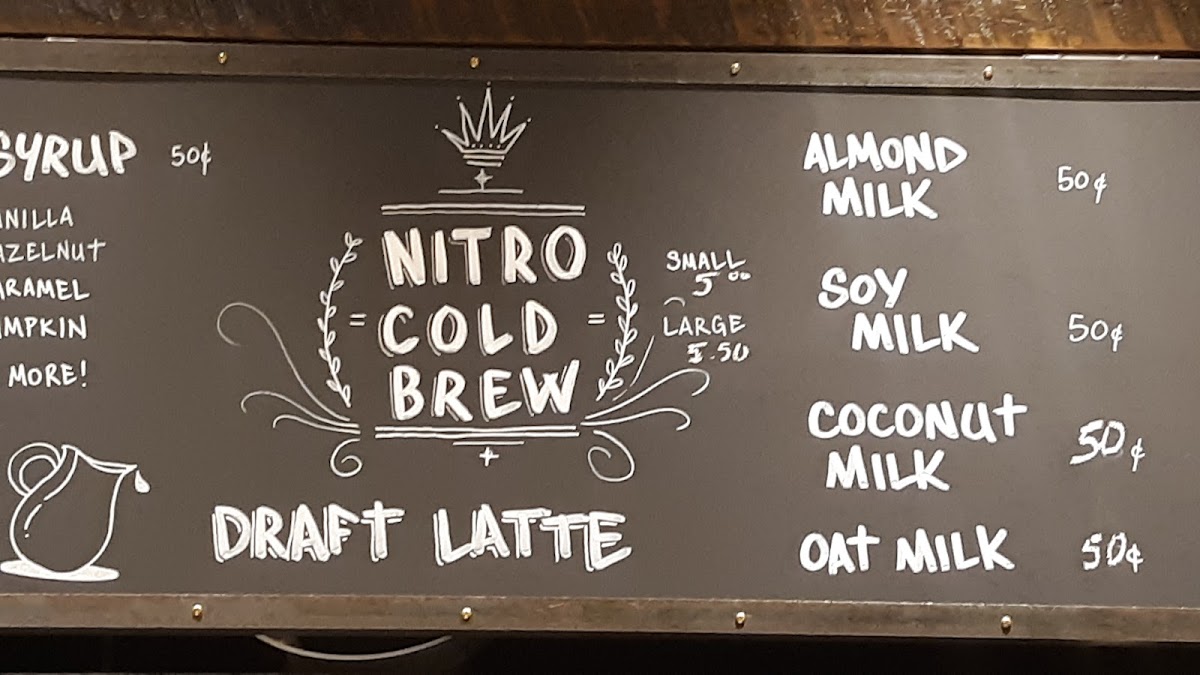 SYRUP 50¢
ANILLA
AZELNUT
ARAMEL
MPKIN
MORE!
NITRO
= COLD =
BREW
SMALL
5.00
LARGE
5.50
DRAFT LATTE
ALMOND
MILK 50¢
SOY
MILK 50¢
COCONUT
MILK 50¢
OAT MILK 50¢